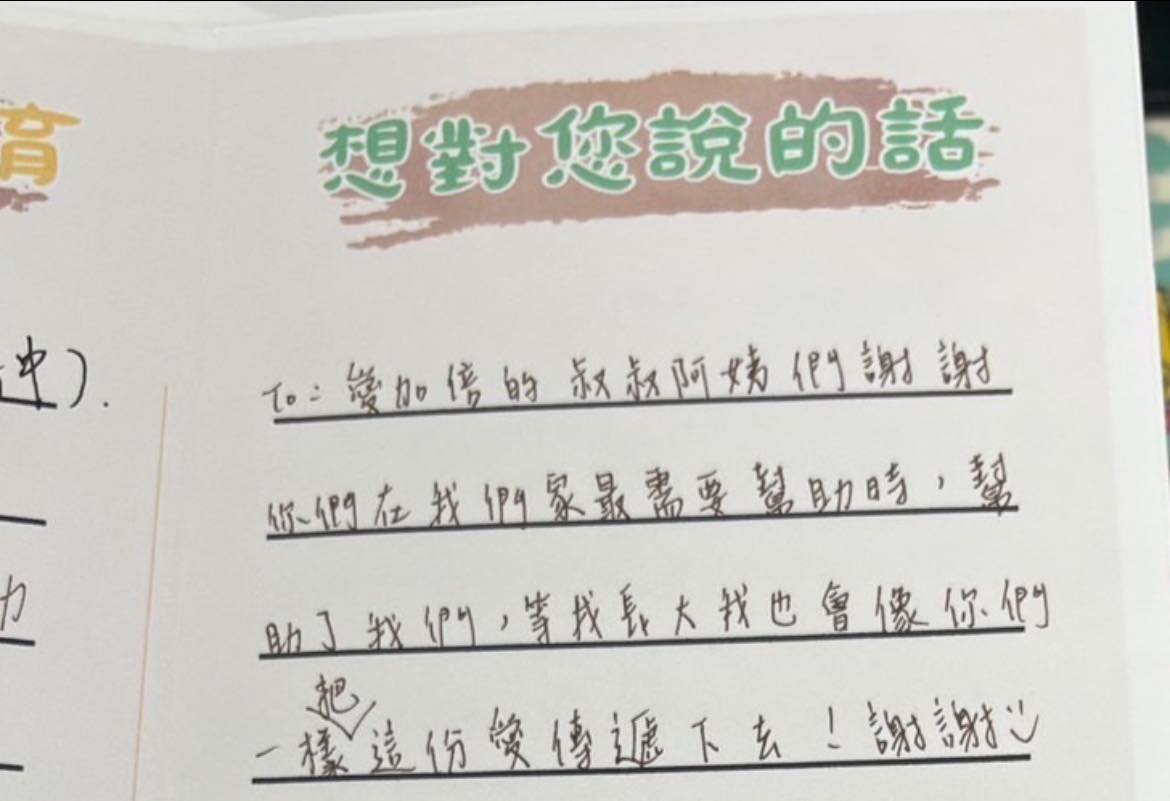 育
想對您說的話
中).
To:愛加倍的叔叔阿姨們謝謝
你們在我們家最需要幫助時,幫
力
助了我們,等我長大我也會像你們
把
一樣這份愛傳遞下去!謝謝